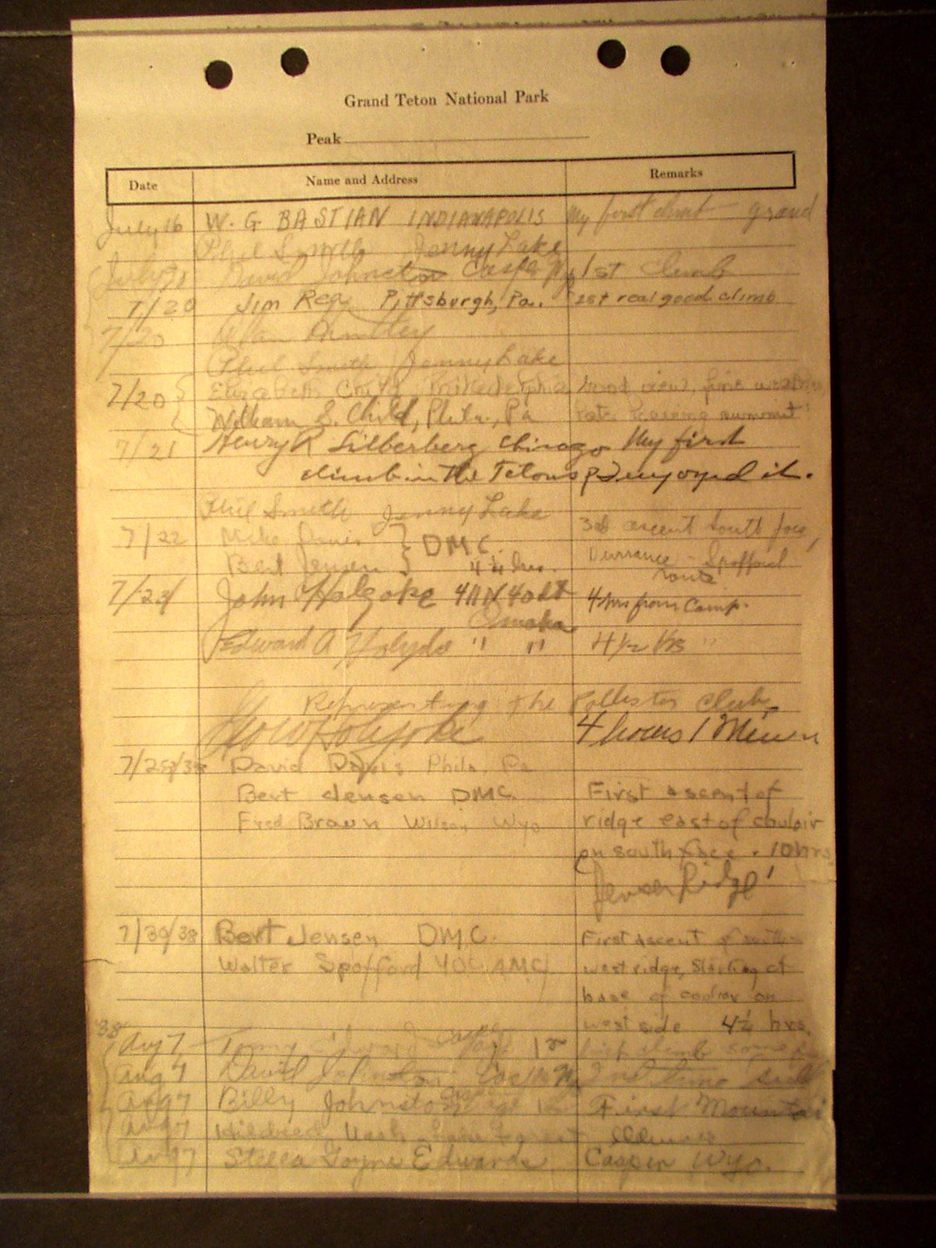 Grand Teton National Park
Peak
Date Name and Address Remarks
July 16 W. G BASTIAN INDIANAPOLIS My first climb grand
Phil Smith Jenny Lake
July 20 David Johnston Casper Wyo 1st climb
7/20 Jim Rea Pittsburgh, Pa. 1st real good climb
7/20
Phil Smith Jenny Lake
7/20 Elizabeth Child, Philadelphia Good view, fine weather
William S. Child, Phila., Pa summit
7/21 Henry R Silberberg Chicago My first
climb in the Tetons & I enjoyed it.
Phil Smith Jenny Lake
7/22 Mike Davis } DMC. 3rd ascent South face,
Bert Jensen } 4 1/4 hrs. Durrance - Spofford
route
7/23 John Holyoke 411 N 40 St 4 hrs from Camp.
Omaha
Edward A Holyoke " " 4 1/2 hrs "
Representing the club
Holyoke 4 hours 1 Min
7/25/38 David Davis Phila, Pa
Bert Jensen DMC. First ascent of
Fred Braun Wilson Wyo ridge east of couloir
on south face. 10 hrs
Jensen Ridge!
7/30/38 Bert Jensen DMC. First ascent of
Walter Spofford YOC AMC west ridge, starting at
base of couloir on
west side 4 1/4 hrs.
38
Aug 7 Casper climb
Aug 7 David Johnston Casper Wyo 2nd time
Aug 7 Billy Johnston Casper age 12 First Mountain
Aug 7 Hildred Lake Forest Illinois
Aug 7 Stella Goyne Edwards Casper Wyo.